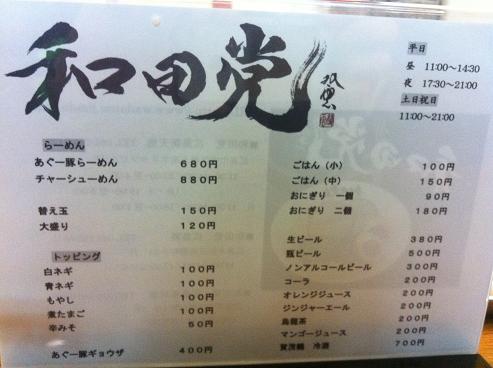 和田党
平日
昼 11:00～14:30
夜 17:30～21:00
土日祝日
11:00～21:00
らーめん
あぐー豚らーめん 680円
チャーシューめん 880円
替え玉 150円
大盛り 120円
トッピング
白ネギ 100円
青ネギ 100円
もやし 100円
煮たまご 100円
辛みそ 50円
あぐー豚ギョウザ 400円
ごはん（小） 100円
ごはん（中） 150円
おにぎり 一個 90円
おにぎり 二個 180円
生ビール 380円
瓶ビール 500円
ノンアルコールビール 300円
コーラ 200円
オレンジジュース 200円
ジンジャーエール 200円
烏龍茶 200円
マンゴージュース 200円
賀茂鶴 冷酒 700円